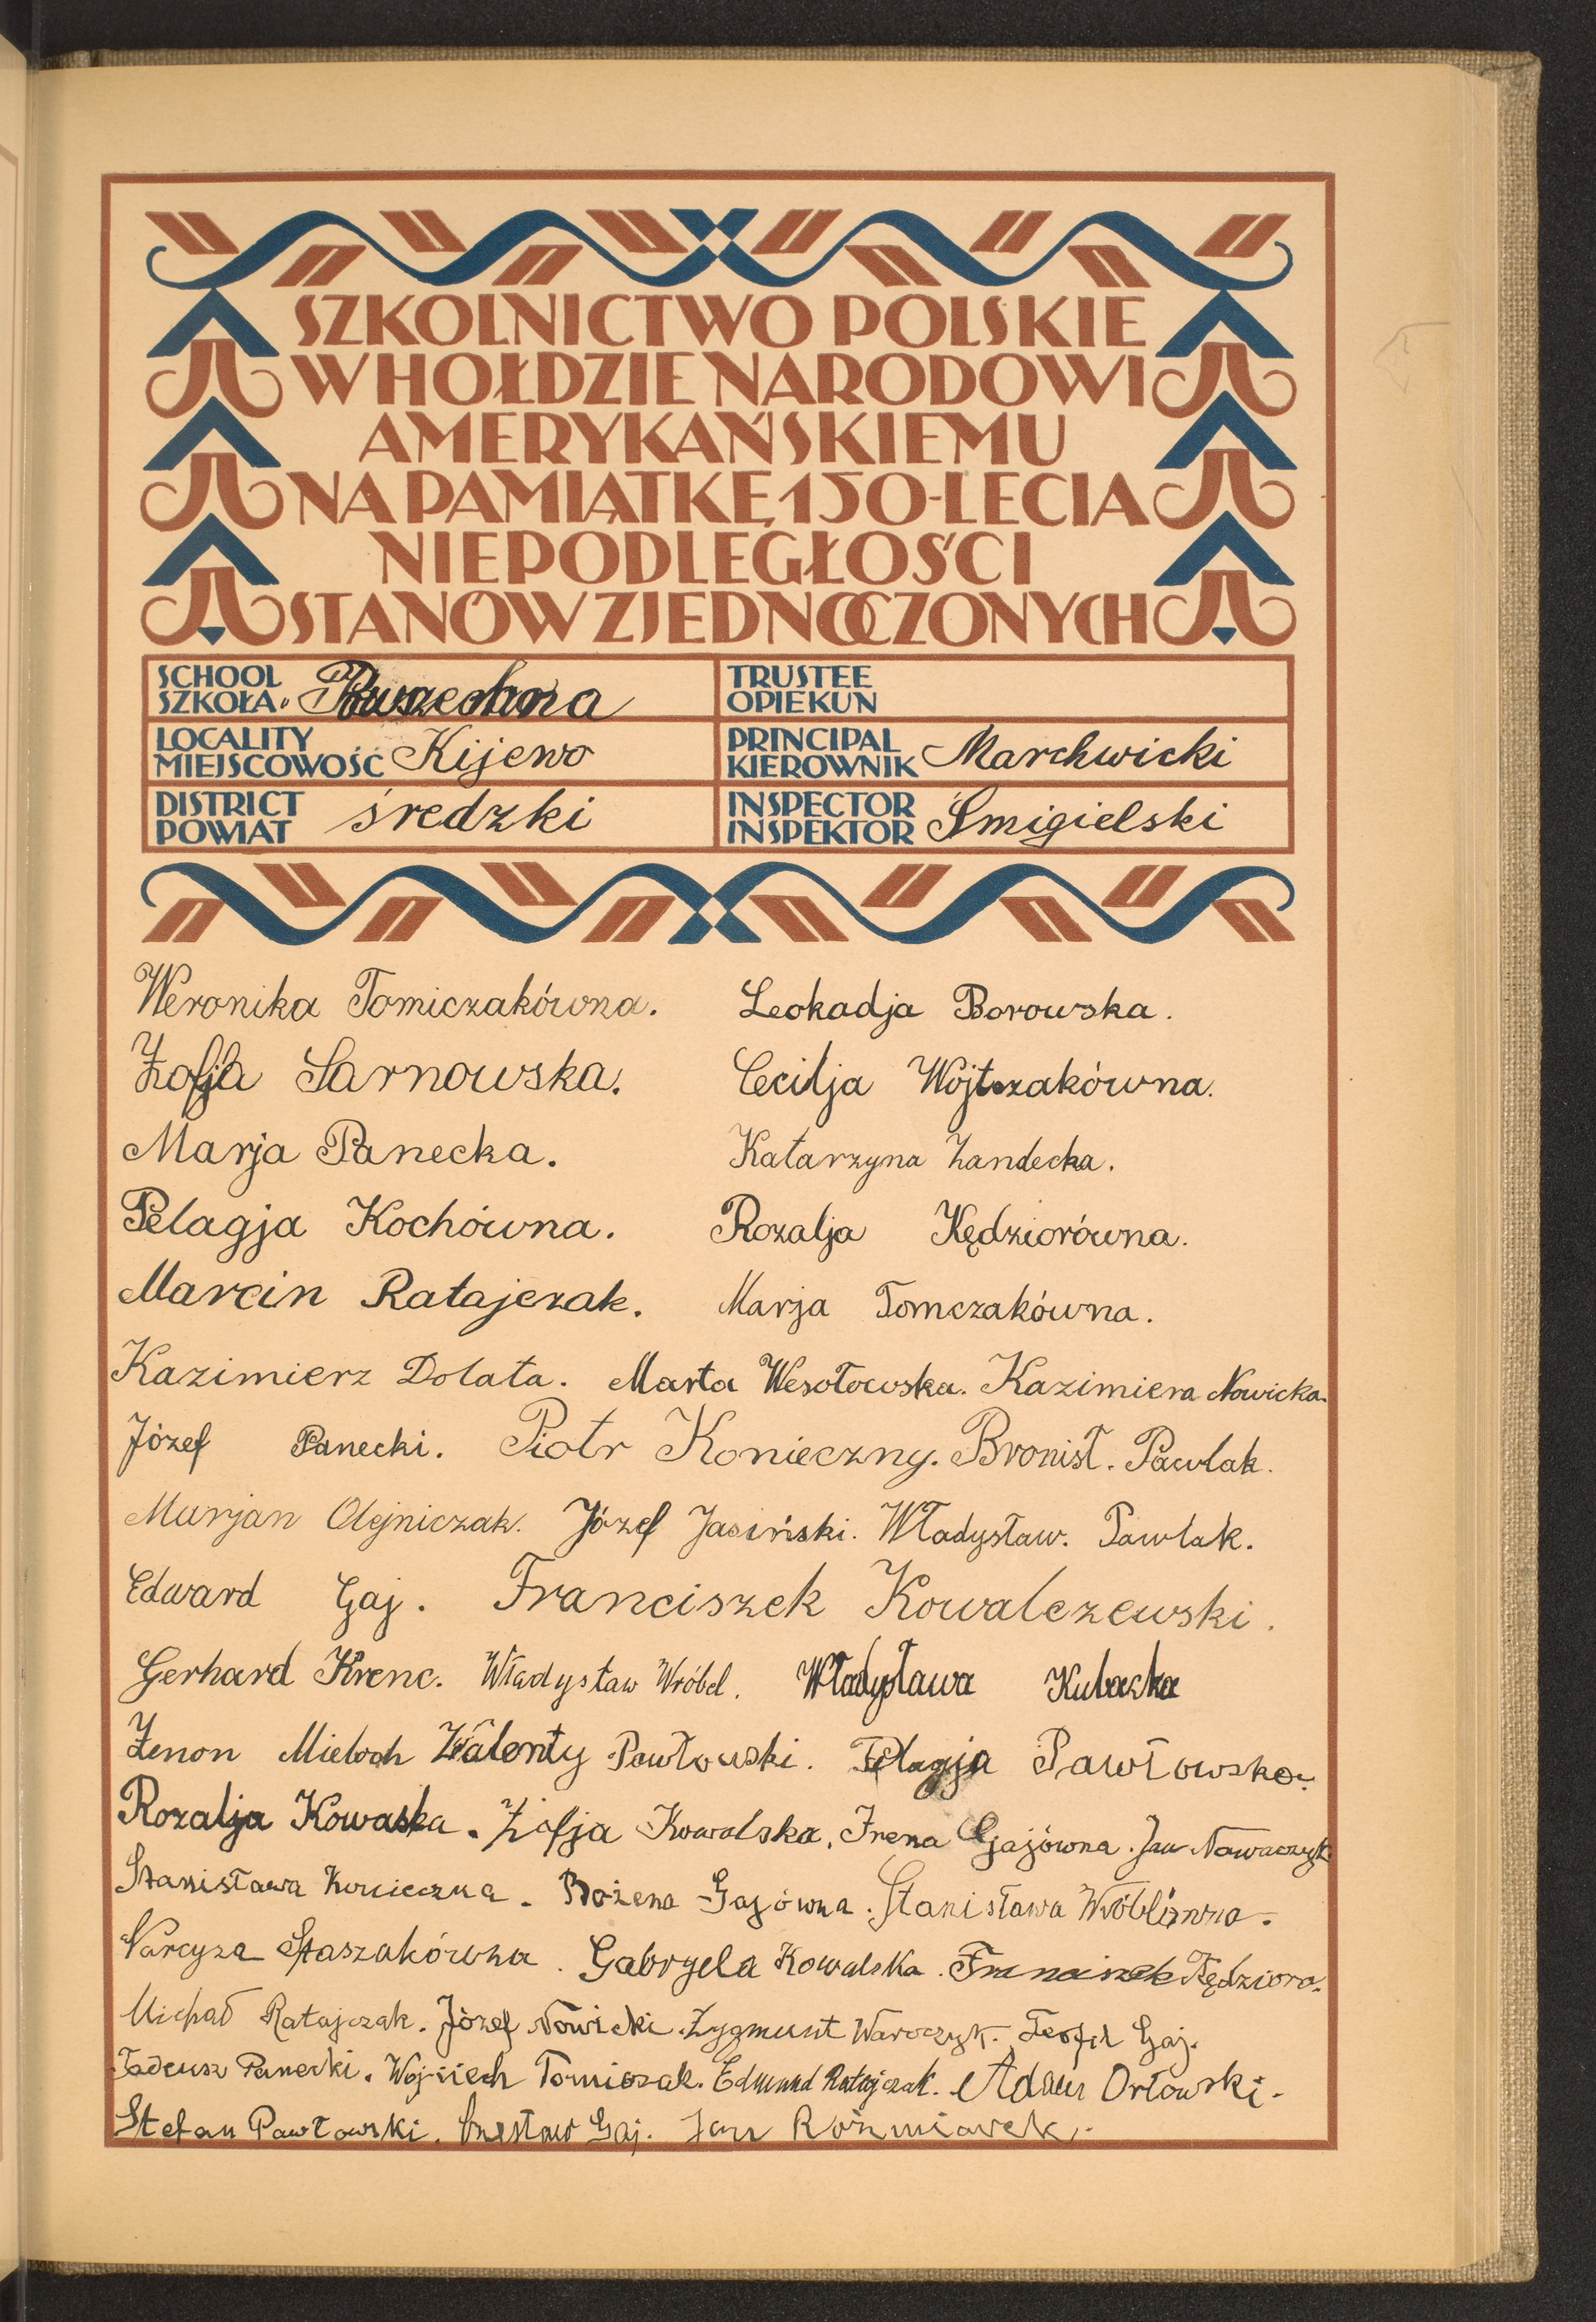 SZKOLNICTWO POLSKIE
W HOŁDZIE NARODOWI
AMERYKAŃSKIEMU
NA PAMIĄTKĘ 150-LECIA
NIEPODLEGŁOŚCI
STANÓW ZJEDNOCZONYCH
SCHOOL
SZKOŁA. Powszechna
TRUSTEE
OPIEKUN
LOCALITY
MIEJSCOWOŚĆ Kijewo
PRINCIPAL
KIEROWNIK Marchwicki
DISTRICT
POWIAT średzki
INSPECTOR
INSPEKTOR Śmigielski
Weronika Tomiczakówna. Leokadja Borowska.
Zofja Sarnowska. Cecilja Wojtczakówna.
Marja Panecka. Katarzyna Żandecka.
Pelagja Kochówna. Rozalja Kędziorówna.
Marcin Ratajczak. Marja Tomczakówna.
Kazimierz Dolata. Marta Wesołowska. Kazimiera Nowicka.
Józef Panecki. Piotr Konieczny. Bronisł. Pawlak.
Marjan Olejniczak. Józef Jasiński. Władysław. Pawlak.
Edward Gaj. Franciszek Kowalczewski.
Gerhard Krenc. Władysław Wróbel. Władysława Kubacka
Zenon Mieloch Walenty Pawłowski. Pelagja Pawłowska.
Rozalja Kowaska. Zofja Kowalska. Irena Gajówna. Jan Nawaczyk
Stanisława Konieczna. Bożena Gajówna. Stanisława Wróblówna.
Narcyza Staszakówna. Gabryela Kowalska. Franciszek Kędziora.
Michał Ratajczak. Józef Nowicki. Zygmunt Waroczyk. Teofil Gaj.
Tadeusz Panecki. Wojciech Tomiczak. Edmund Ratajczak. Adam Orłowski.
Stefan Pawłowski. Czesław Gaj. Jan Rożmiarek.